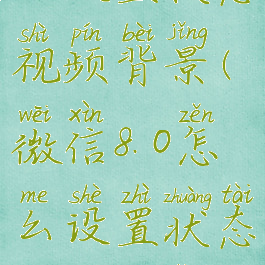 shì pín bèi jǐng
视频背景(
wēi xìn zěn
微信8.0怎
me shè zhì zhuàng tài
么设置状态